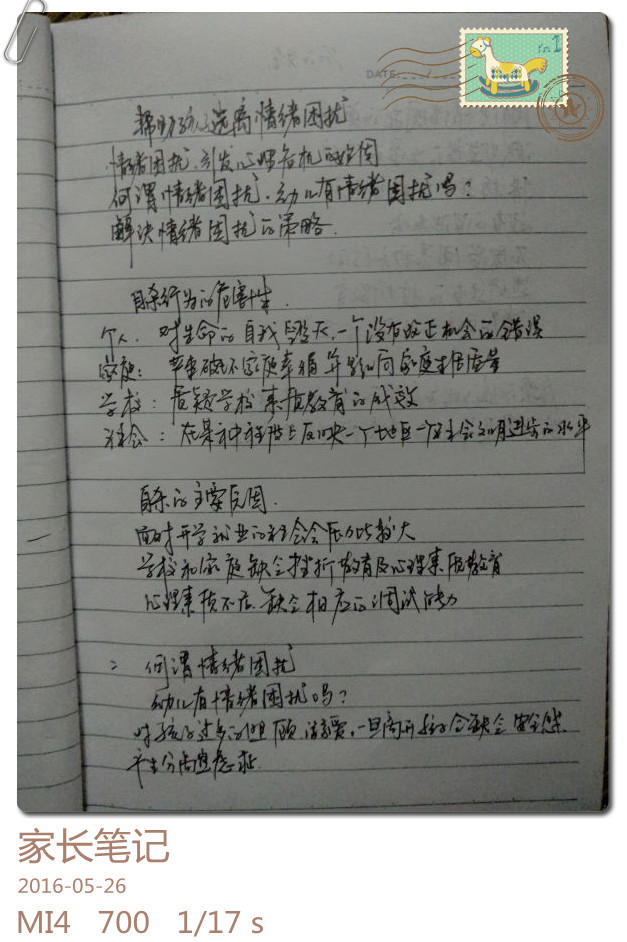 DATE:
帮助孩子逃离情绪困扰
情绪困扰,引发心理危机的始因
何谓情绪困扰,幼儿有情绪困扰吗?
解决情绪困扰的策略.
自杀行为的危害性.
个人: 对生命的自我毁灭,一个没有改正机会的错误
家庭: 幸福 家庭幸福并影响家庭生活质量
学校: 质疑学校素质教育的成效
社会: 在某种程度上反映一个地区一个社会文明进步的水平
自杀的主要原因.
面对升学就业的社会压力比较大
学校和家庭缺乏挫折教育及心理素质教育
心理素质不. 缺乏相应的调试能力
二 何谓情绪困扰
幼儿有情绪困扰吗?
对孩子过多的照顾,溺爱,一旦离开 会缺乏安全感.
产生分离焦虑症.
家长笔记
2016-05-26
MI4 700 1/17 s